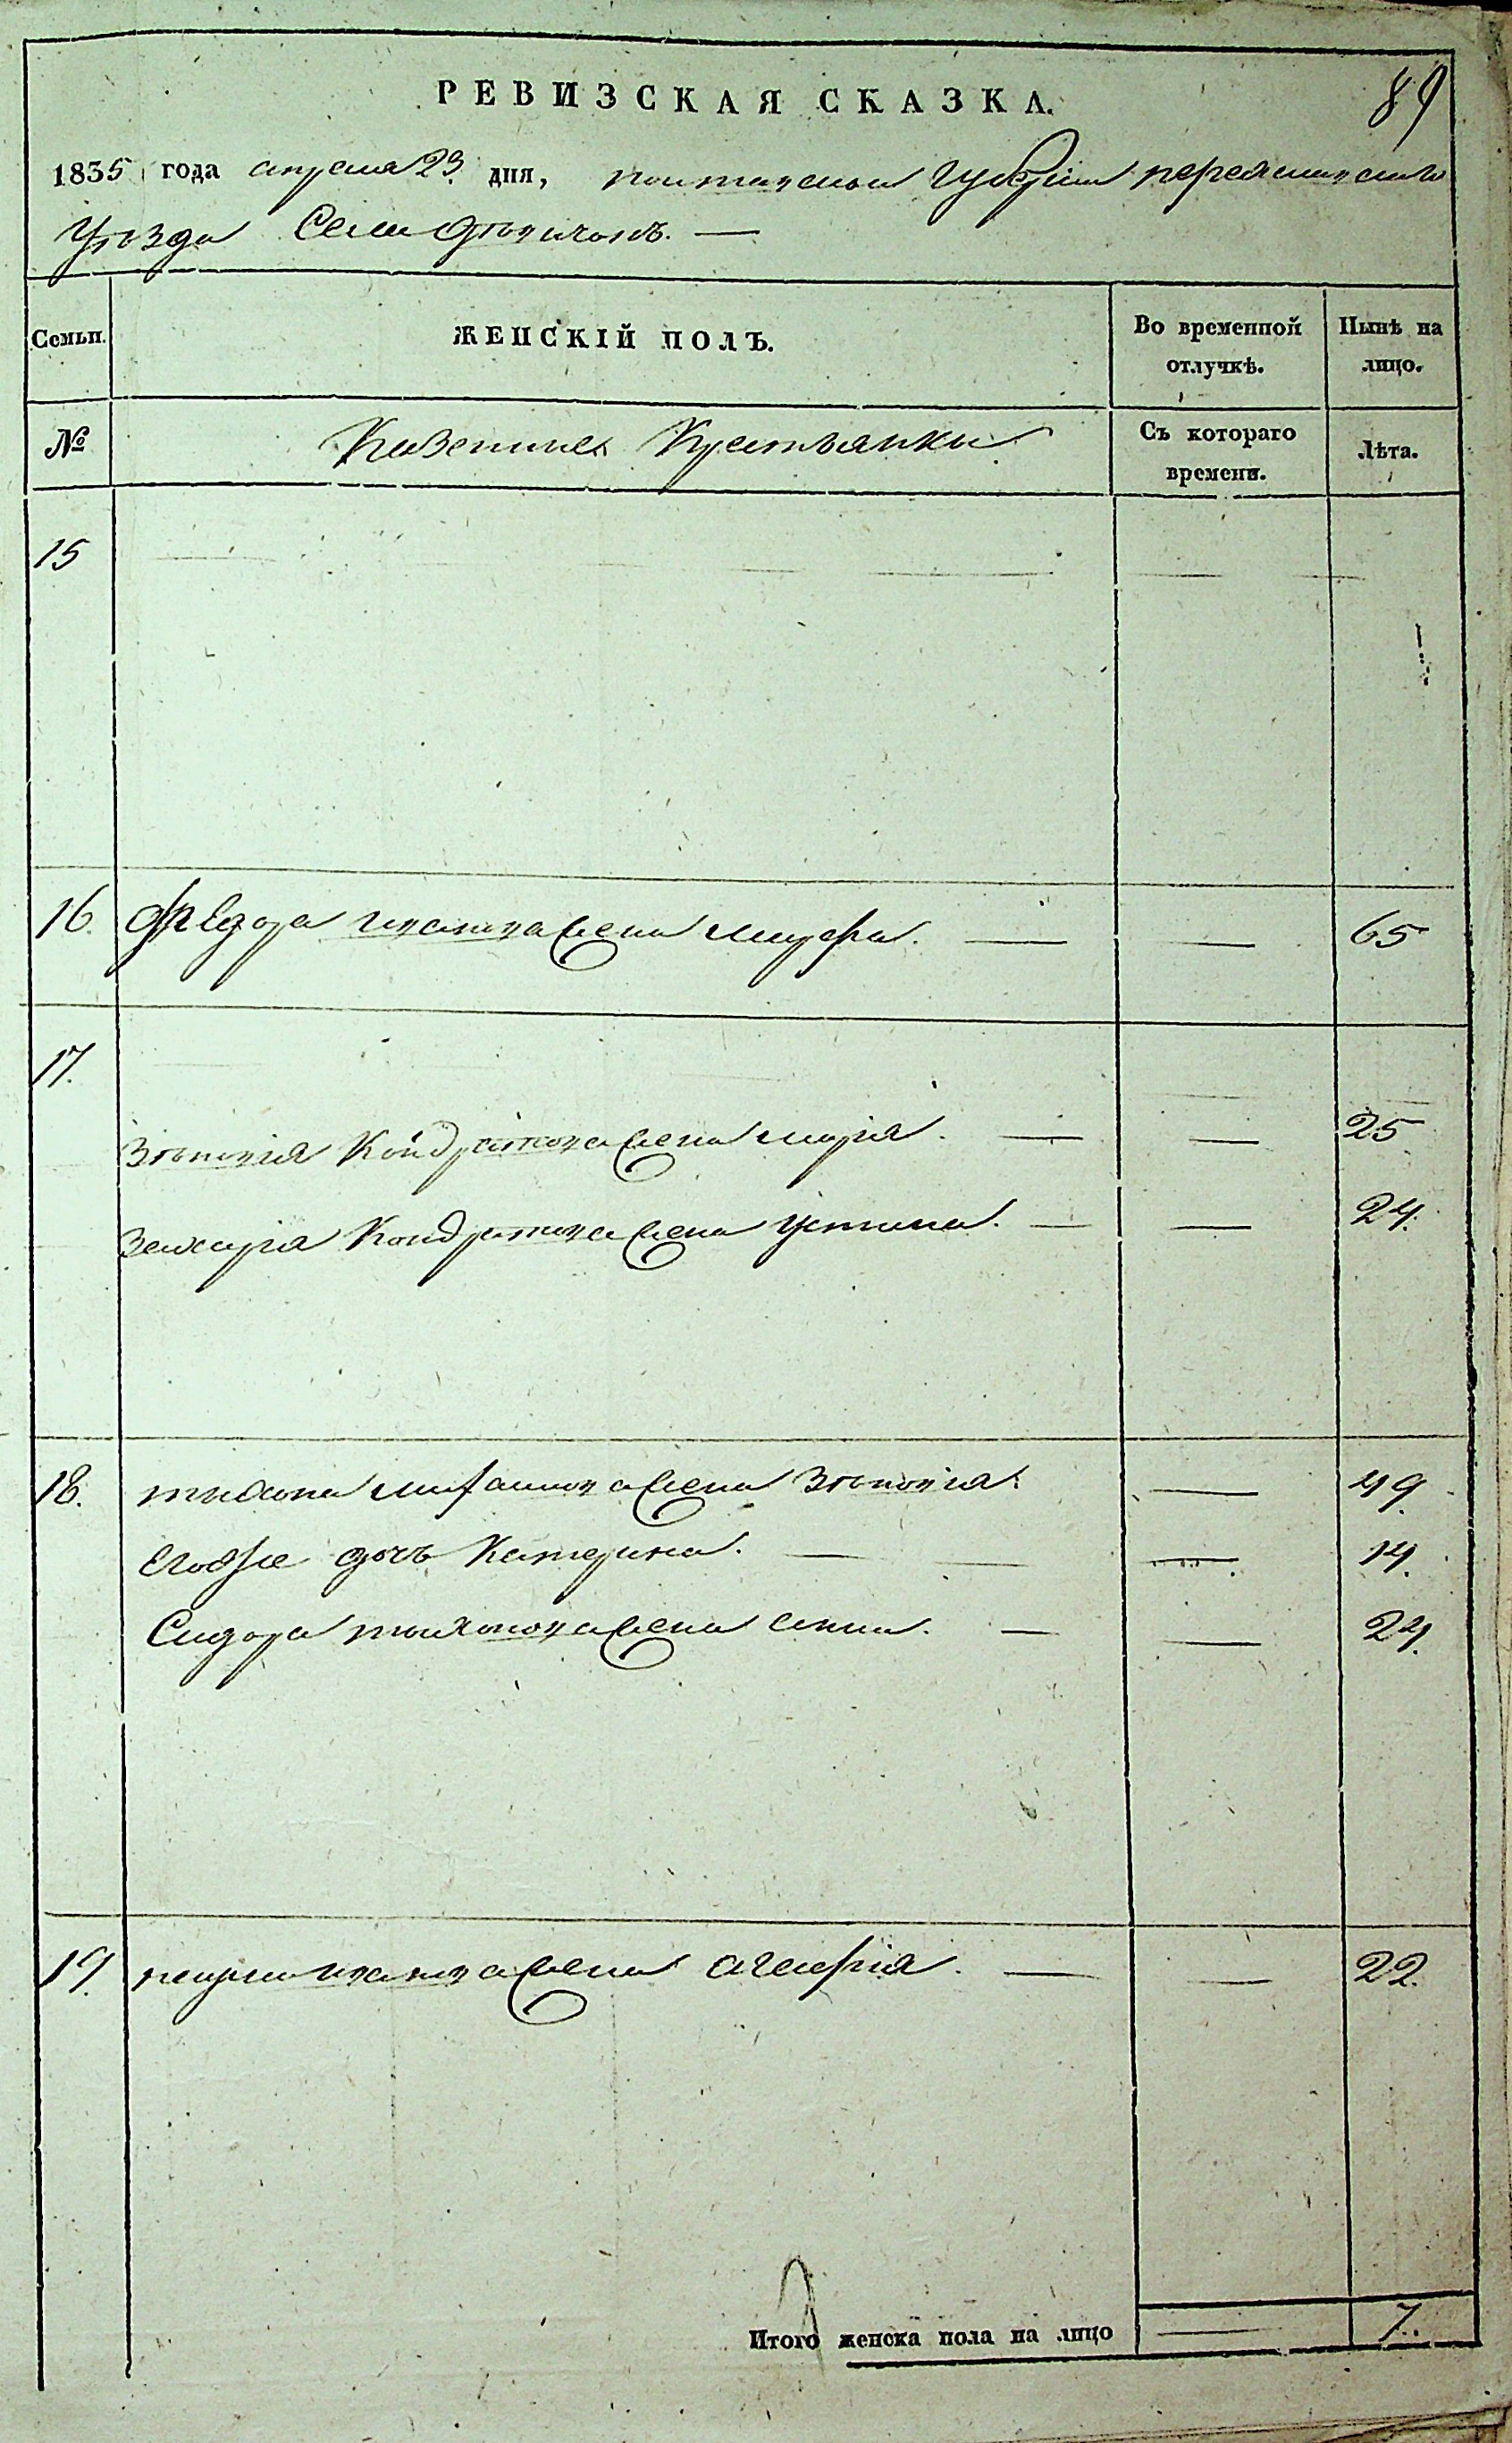 РЕВИЗСКАЯ СКАЗКА.
89
1835 года апреля 23 дня, полтавской Губернии переяславского
Уѣзда Села Дѣвичокъ. —
Семьи. ЖЕНСКІЙ ПОЛЪ. Во временной отлучкѣ. Нынѣ на лицо.
№ Казенные Крестьянки Съ котораго времени. Лѣта.
15 — — —
16. Федора Иванова жена — — 65
17.
Зѣновія Кондратова жена марія. — — 25
Захарія Кондратова жена Устина. — — 24.
18. тихона жена Зѣновія. — 49.
Егоже дочь Катерина. — — 14.
Сидора тихонова жена анна. — — 24.
19. Иванова жена агафія. — — 22.
Итого женска пола на лицо — 7.